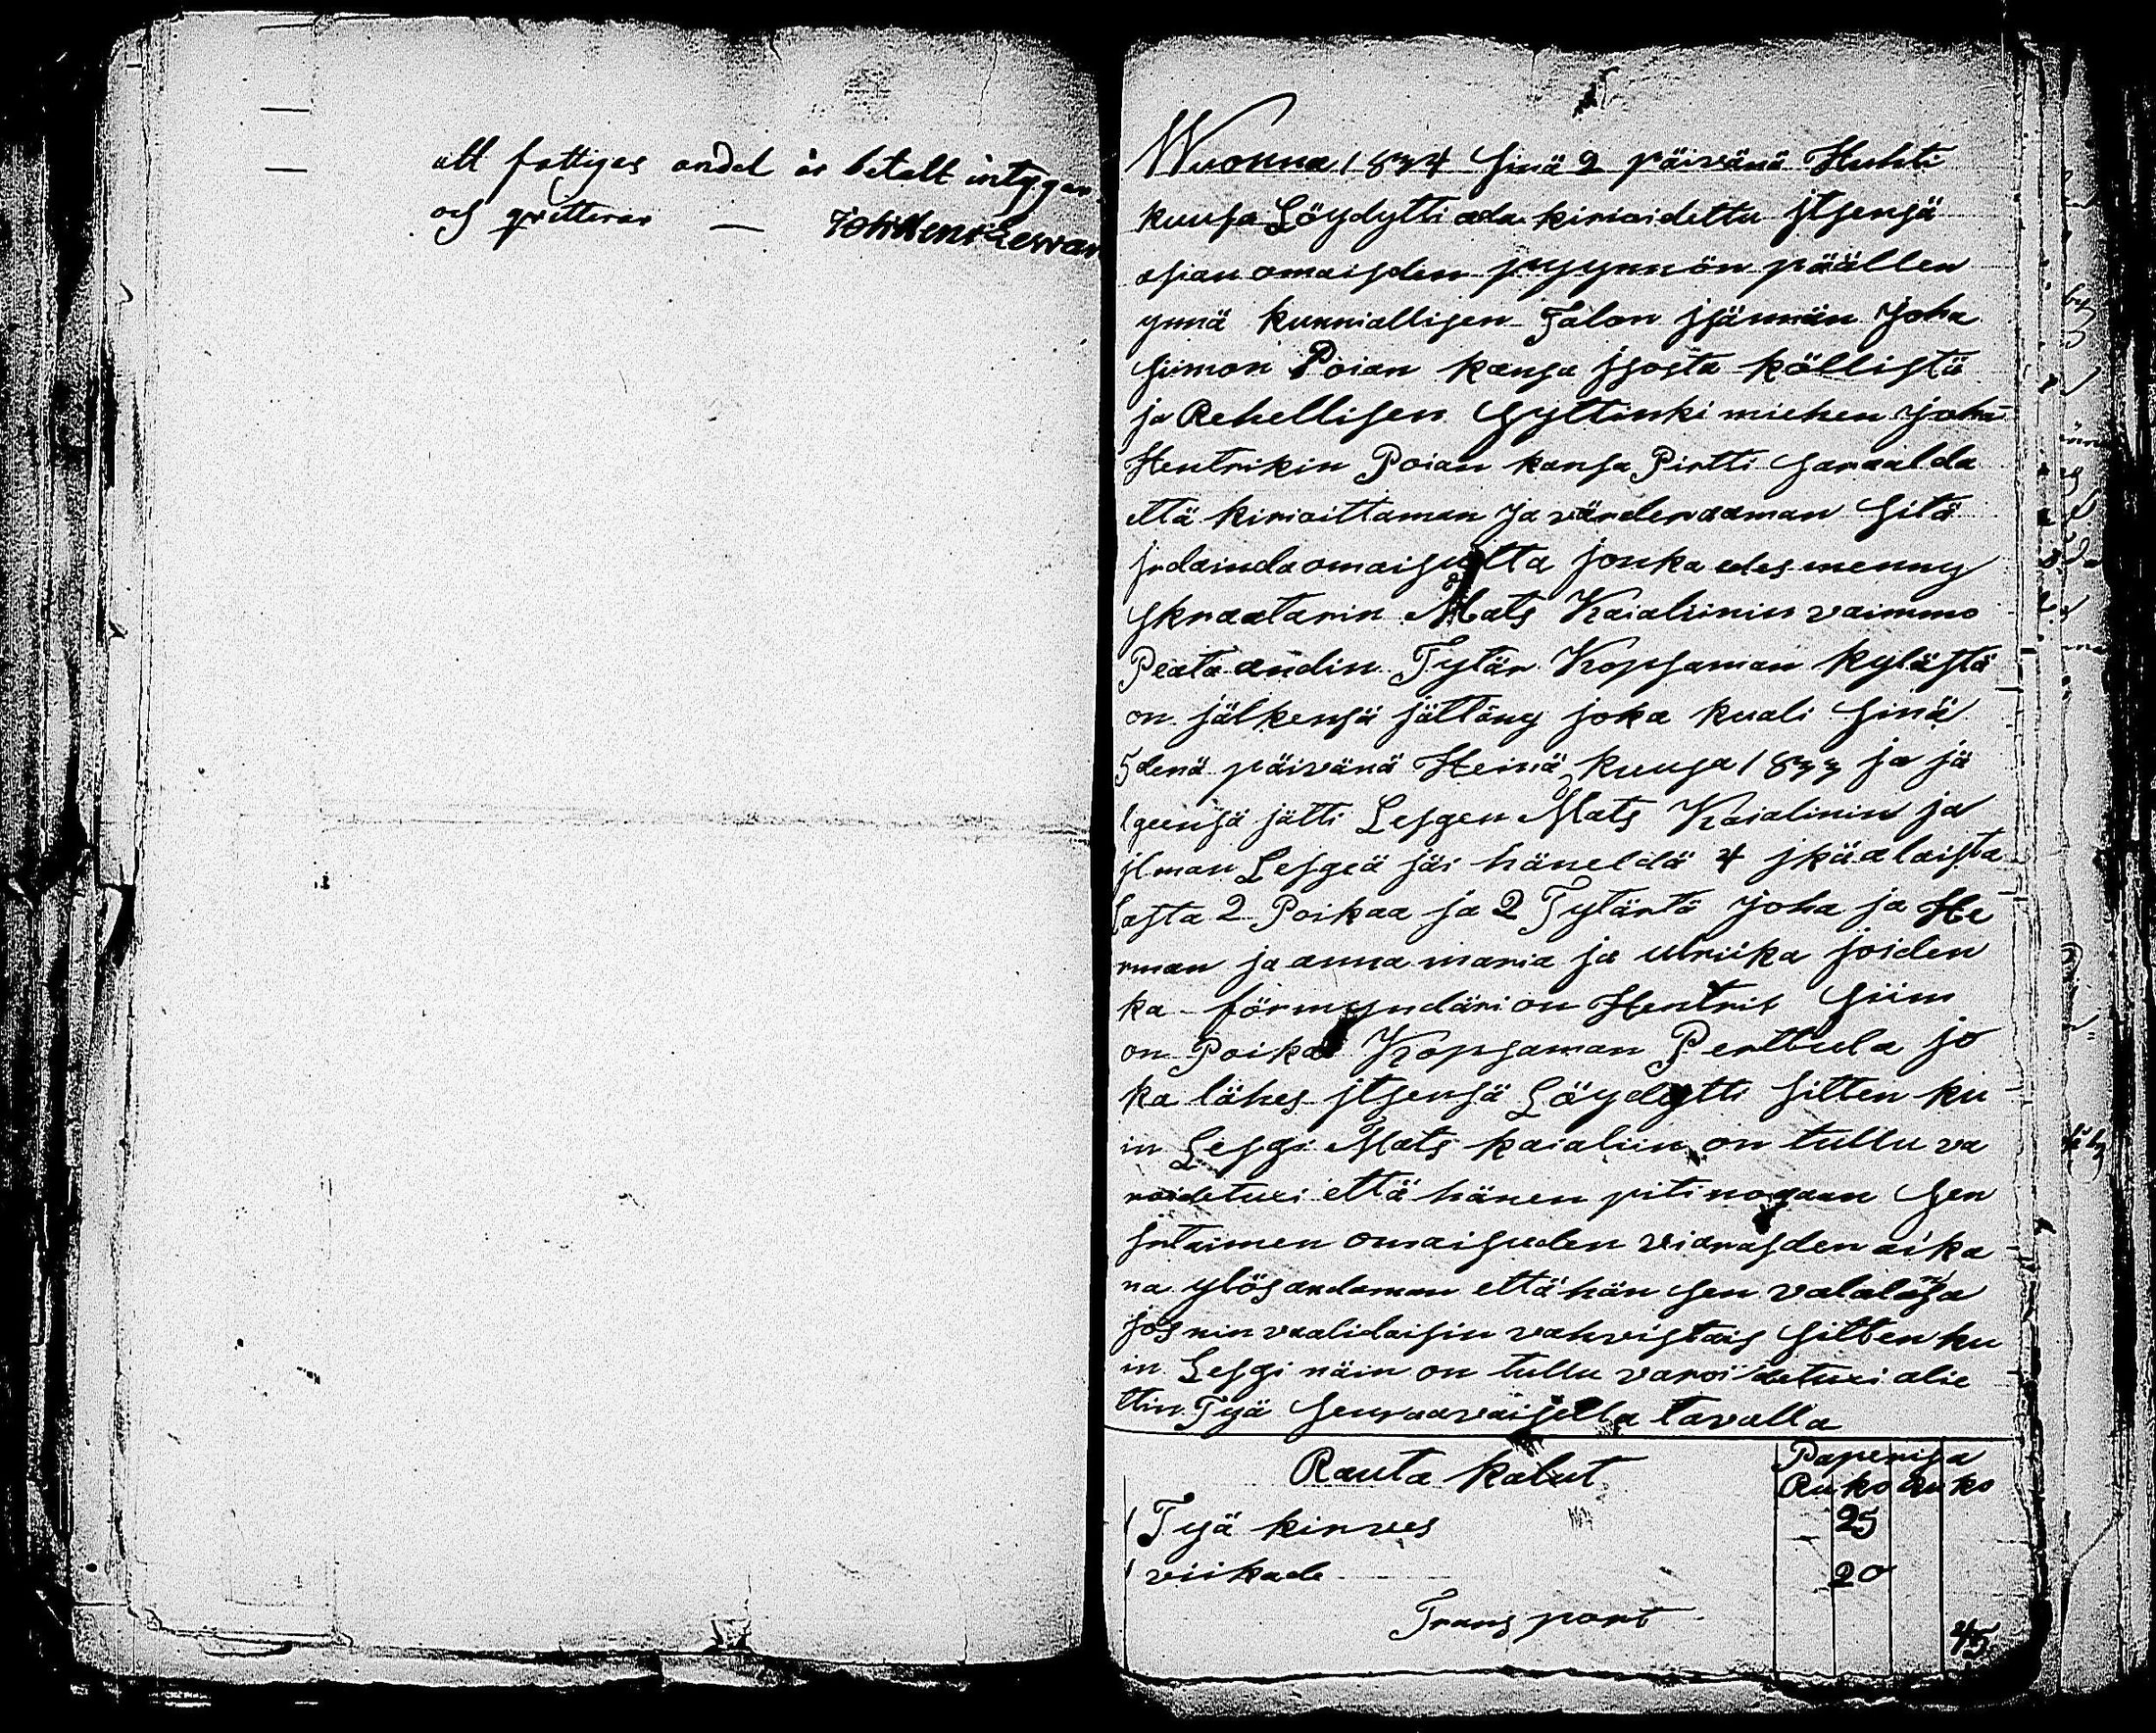 att fattiges andel är betalt intygar
och qvitterar —
Wuonna 1834 sinä 2 päivänä Huhti
kuusa Löydytti ala kirioidettu jtsensä
asian omaisden pyynnön päällen
ynnä kunniallisen Talon jsännän Joha
Siimon Poian kansa jsosta källistä
ja Rehellisen Syttinki miehen Joha
Hentrikin Poian kansa Pirtti saraalda
että kirioittaman ja värderaaman sitä
jrdaindaomaisutta jonka edesmenny
skraatarin Mats Kaialiinin vaimmo
Peata andin Tytär Kopsaman kylästä
on jälkensä jättäny joka kuali sinä
5denä päivänä Heinä kuusa 1833 ja jä
lgeensä jätti Lesgen Mats Kaialinin ja
jlman Lesgeä jäi häneldä 4 jkäalaista
lasta 2 Poikaa ja 2 Tytärtä Joha ja He
rman ja anna maria ja ulriika joiden
ka förmyndäri on Hentrik Siim
on Poika Kopsaman Perttula jo
ka lähes jtsensä Löydytti sitten ku
in Lesgi Mats kaialiin on tullu va
roidetuxi että hänen piti nogaan sen
jrtaimen omaisuden viarasden aika
na ylösandaman että hän sen valalansa
jos nin vaalidaisin vahvistais sitten ku
in Lesgi näin on tullu varoidetuxi alie
ttin Työ seuraavaisella tavalla
Rauta kalut
Paperisa
Ru ko Ru ko
1 Tyä kirves — 25
1 viikade 20
Transport 45